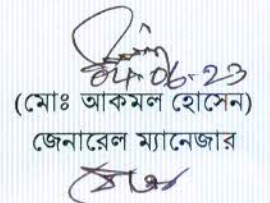 04-06-23
(মোঃ আকমল হোসেন)
জেনারেল ম্যানেজার